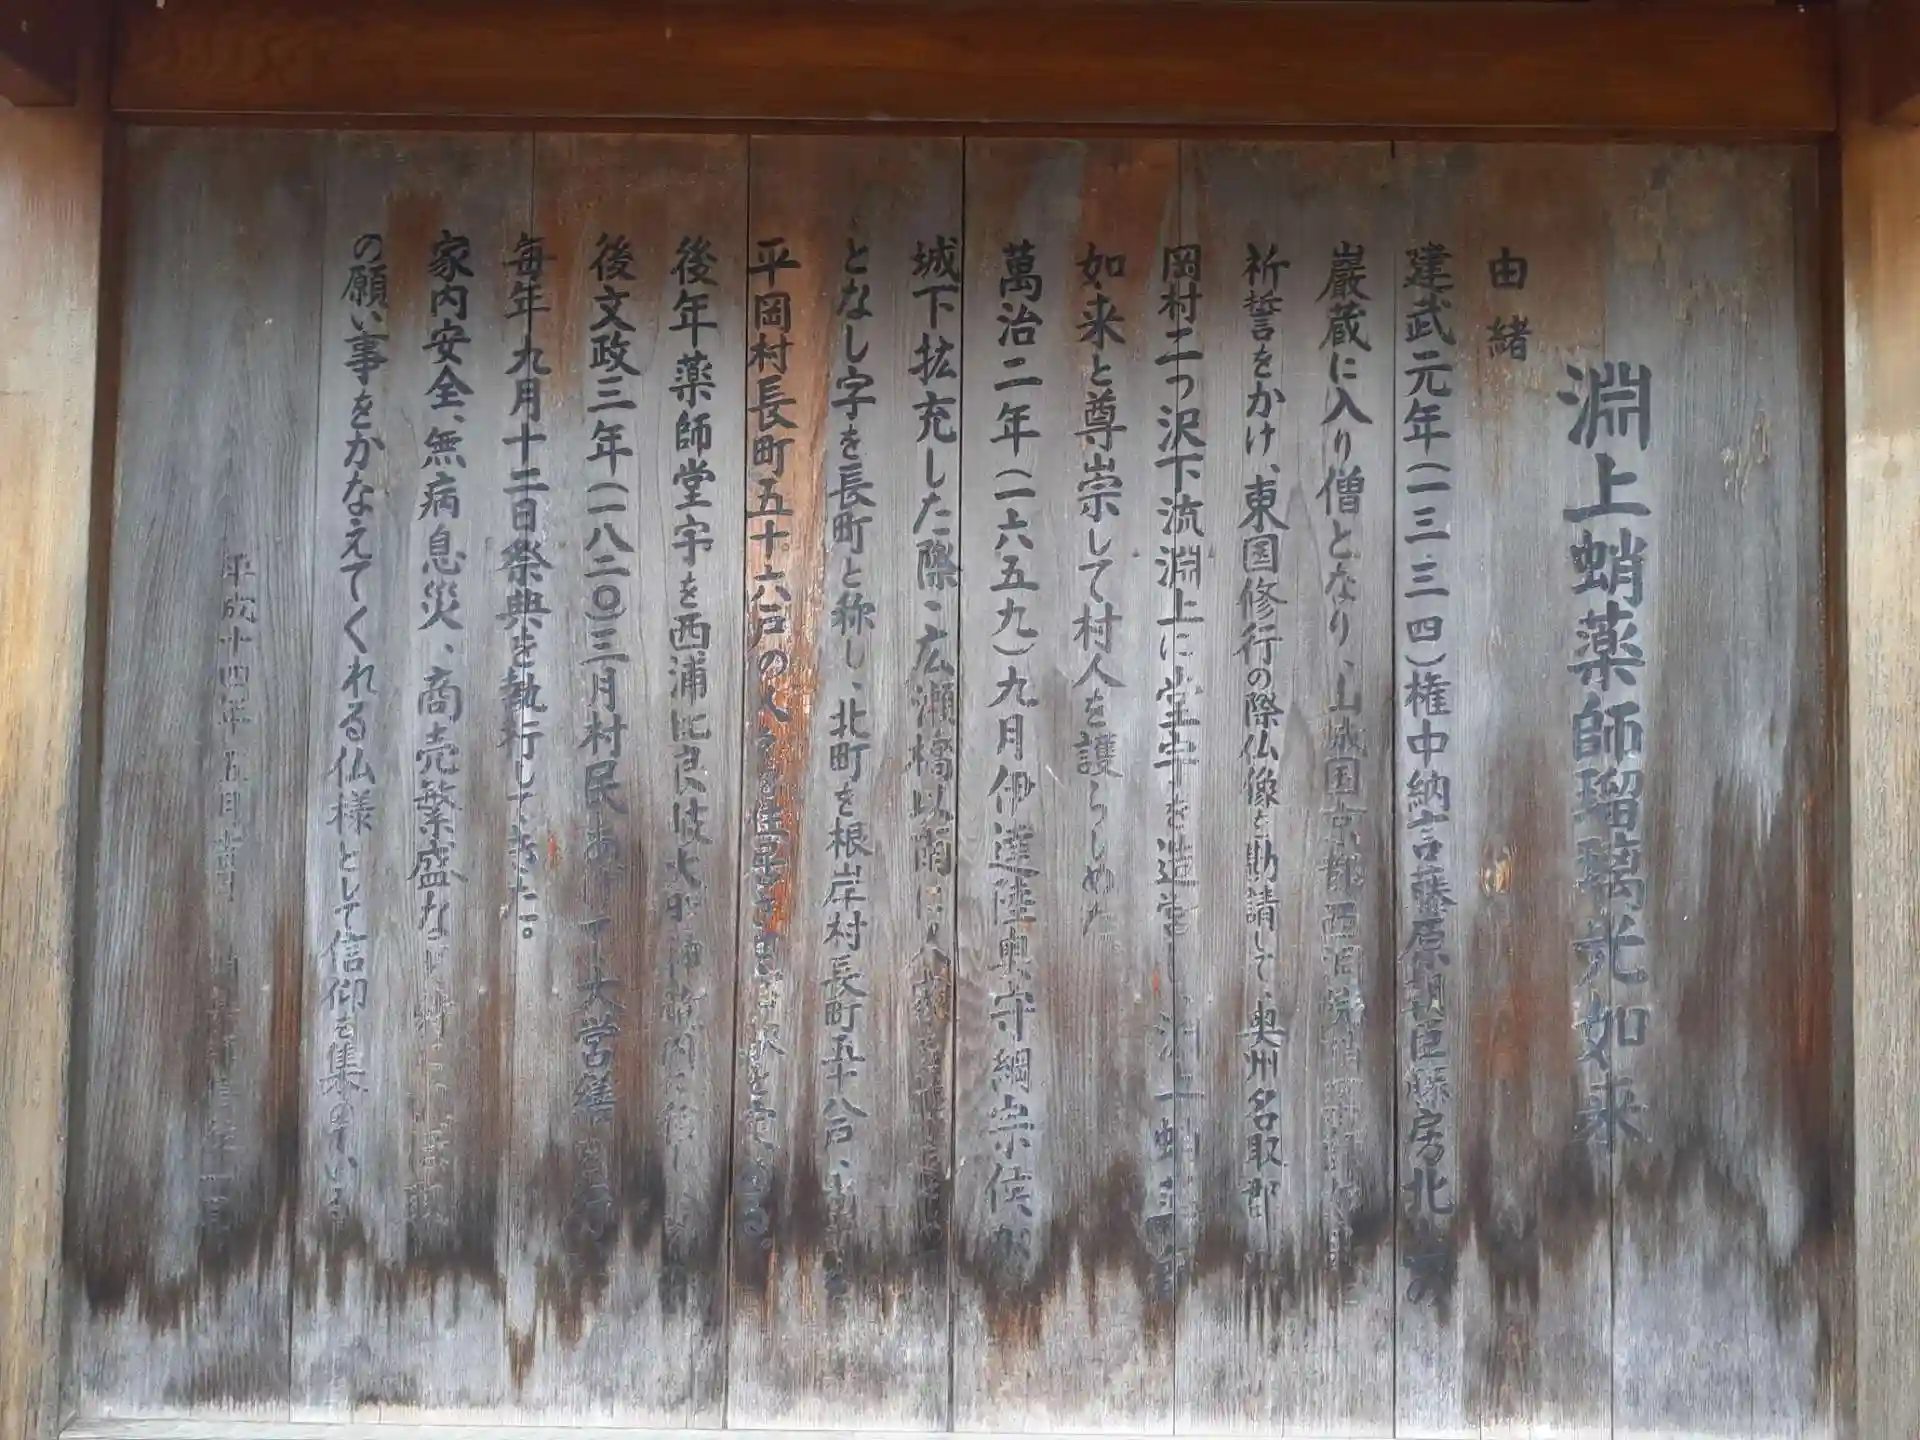 淵上蛸薬師瑠璃光如来
由緒
建武元年(一三三四)権中納言藤原朝臣藤房北
巌蔵に入り僧となり、山城国京都西洞院
祈誓をかけ、東国修行の際仏像を勧請して、奥州名取郡
岡村二つ沢下流淵上に堂宇を造営し、淵上蛸薬師
如来と尊崇して村人を護らしめた
萬治二年(一六五九)九月伊達陸奥守綱宗侯が
城下拡充した際、広瀬橋以南に人
となし字を長町と称し、北町を根岸村長町五十八戸、
平岡村長町五十六戸の
後年薬師堂宇を西浦
後文政三年(一八二〇)三月村民あげて大営繕を行
毎年九月十二日祭典を執行してきた。
家内安全、無病息災、商売繁盛など特に
の願い事をかなえてくれる仏様として信仰を集めている
平成十四年五月吉日